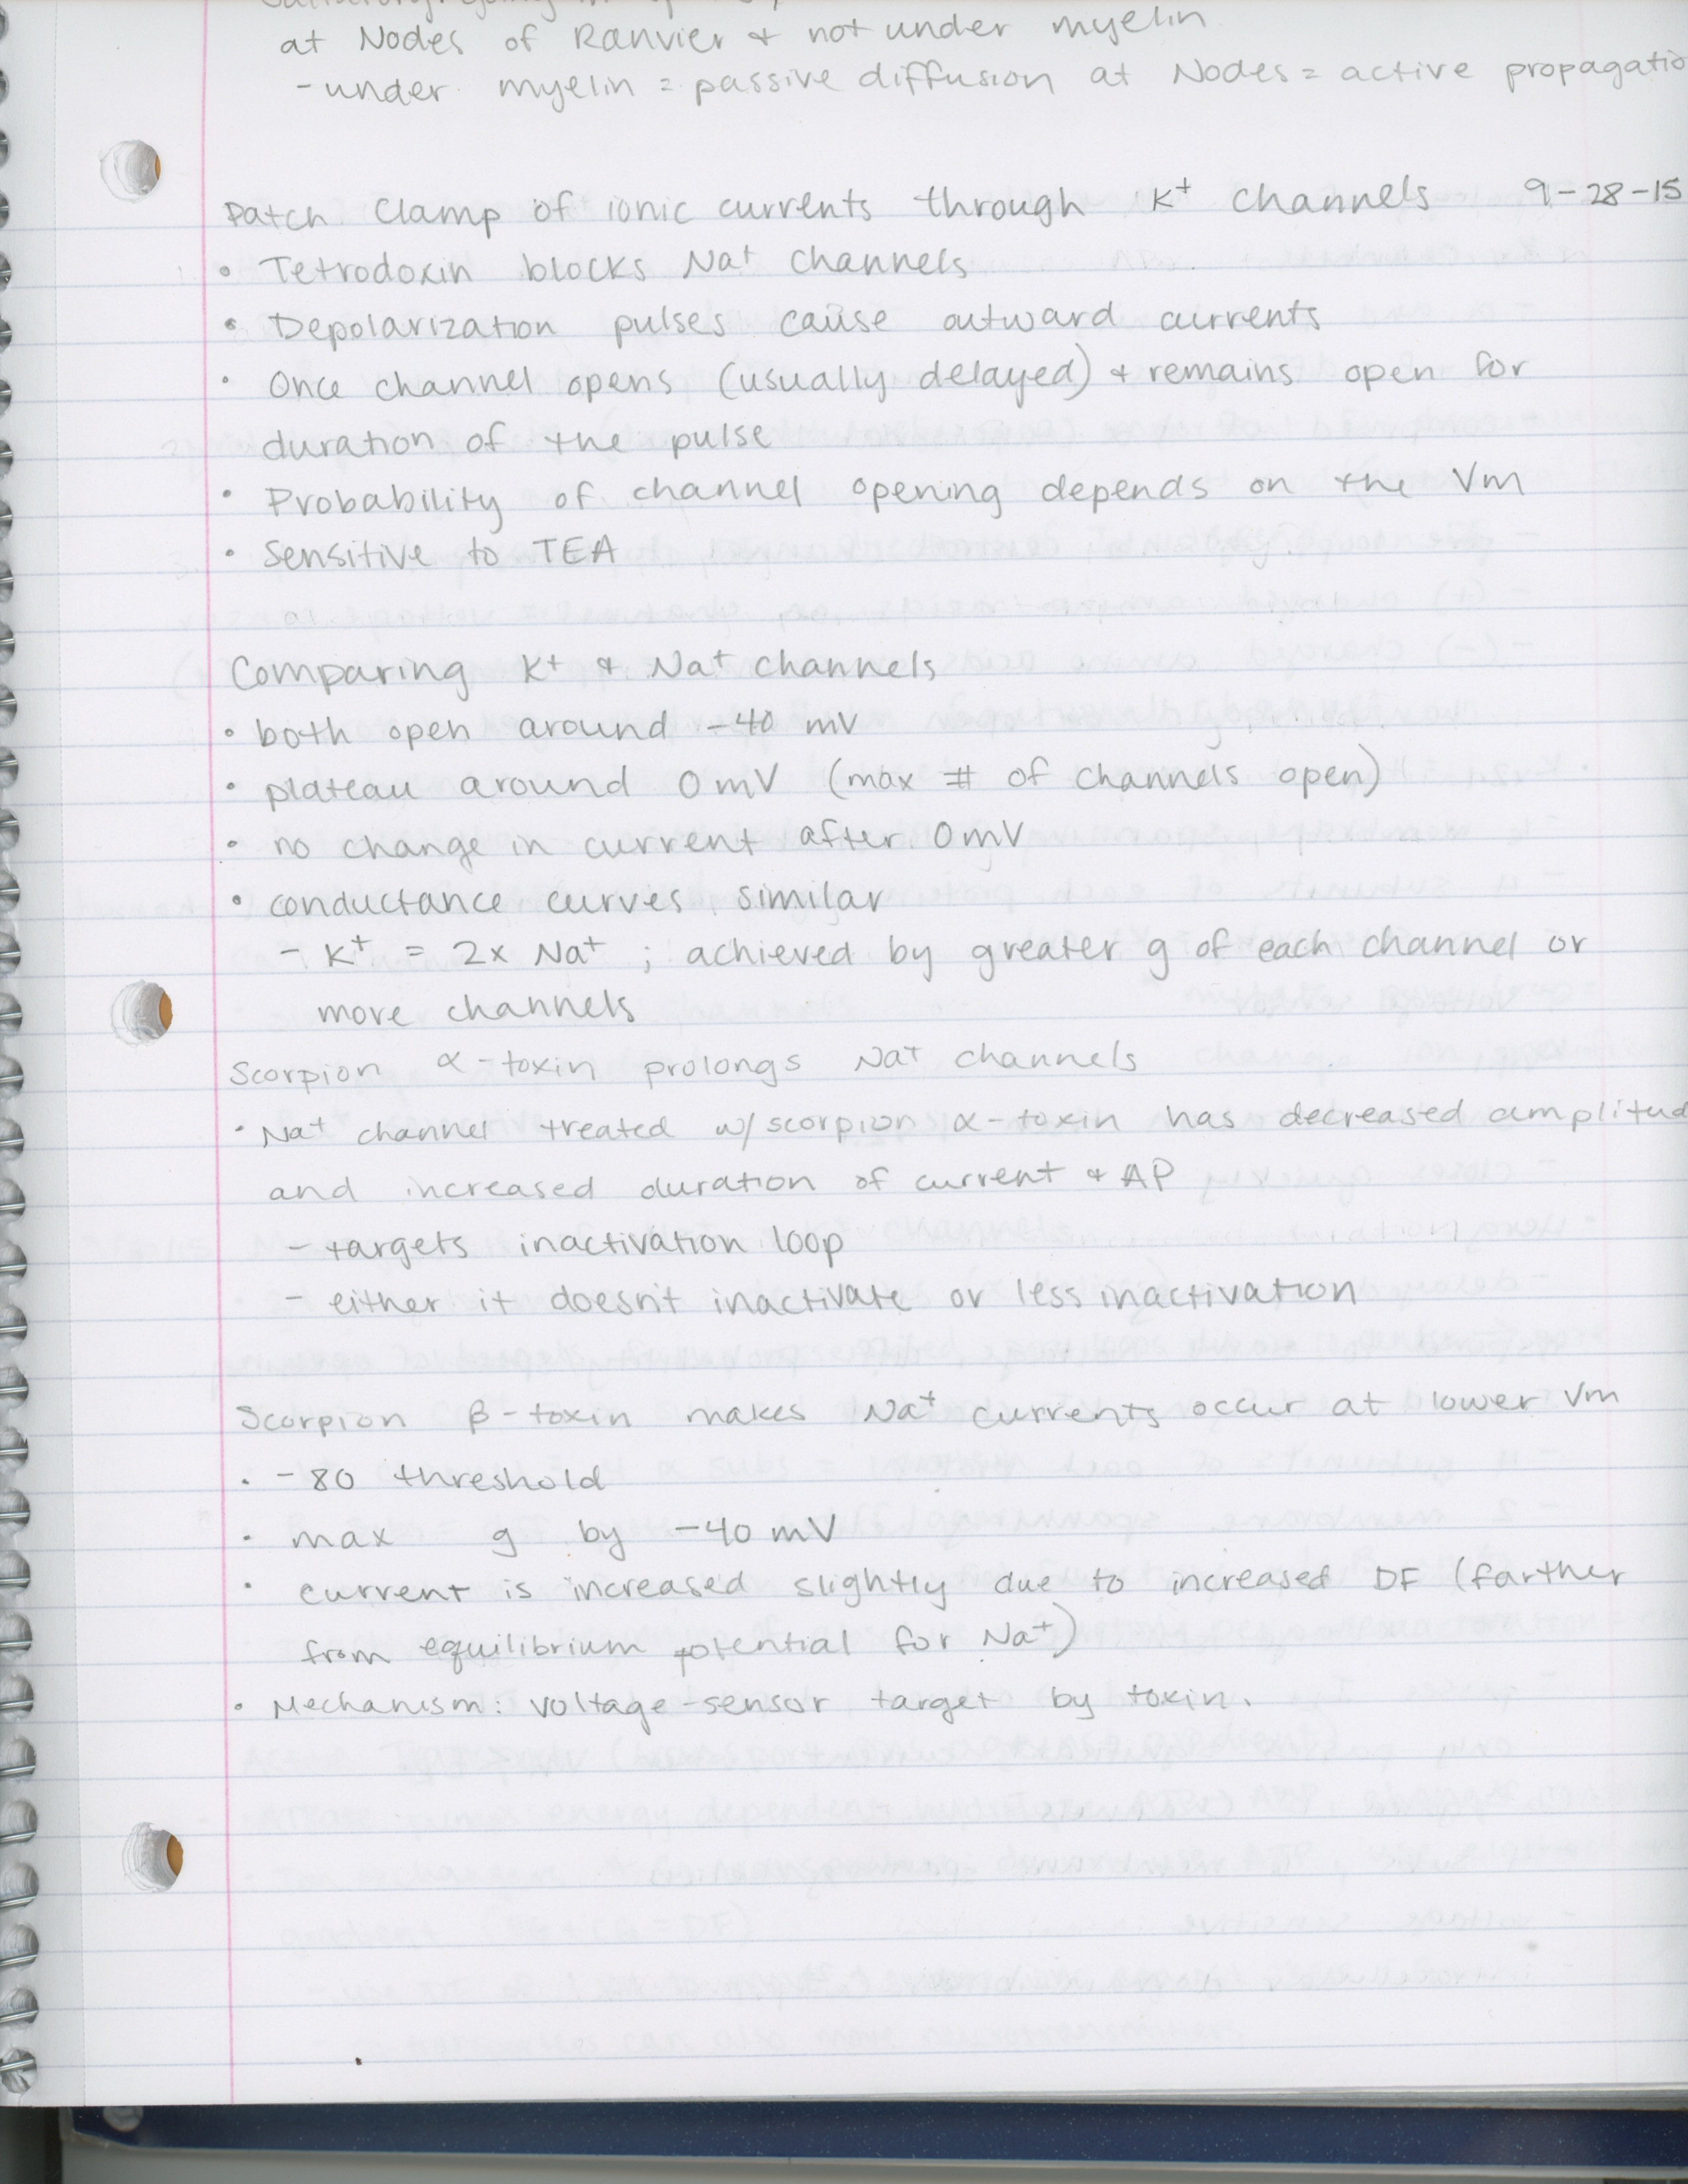 at Nodes of Ranvier & not under myelin
- under myelin = passive diffusion at Nodes = active propagatio
Patch Clamp of ionic currents through K+ channels 9-28-15
• Tetrodoxin blocks Na+ channels
• Depolarization pulses cause outward currents
• Once channel opens (usually delayed) & remains open for
duration of the pulse
• Probability of channel opening depends on the Vm
• Sensitive to TEA
Comparing K+ & Na+ channels
• both open around -40 mV
• plateau around 0mV (max # of channels open)
• no change in current after 0mV
• conductance curves similar
- K+ = 2x Na+ ; achieved by greater g of each channel or
more channels
Scorpion α-toxin prolongs Na+ channels
• Na+ channel treated w/ scorpion α-toxin has decreased amplitud
and increased duration of current & AP
- targets inactivation loop
- either it doesn't inactivate or less inactivation
Scorpion β-toxin makes Na+ currents occur at lower Vm
• -80 threshold
• max g by -40 mV
• current is increased slightly due to increased DF (farther
from equilibrium potential for Na+)
• Mechanism: voltage-sensor target by toxin.